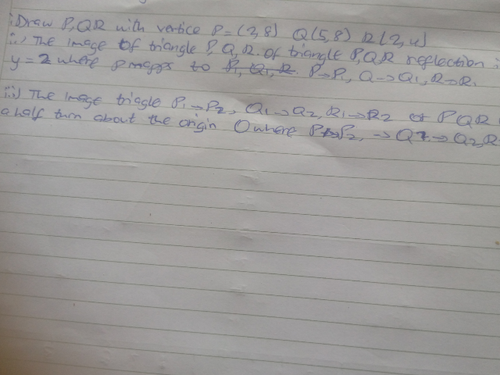 i Draw P, QR with vertice P = (2, 8) Q(5, 8) R(2, 4)
ii) The image of triangle P, Q, R of triangle P, QR reflection i
y = 2 where P mapps to P1, Q1, R P→P1, Q→Q1, R→R1
ii) The image triagle P1→P2, Q1→Q2, R1→R2 of PQR
a half turn about the origin O where P→P2, →Q1→Q2, R